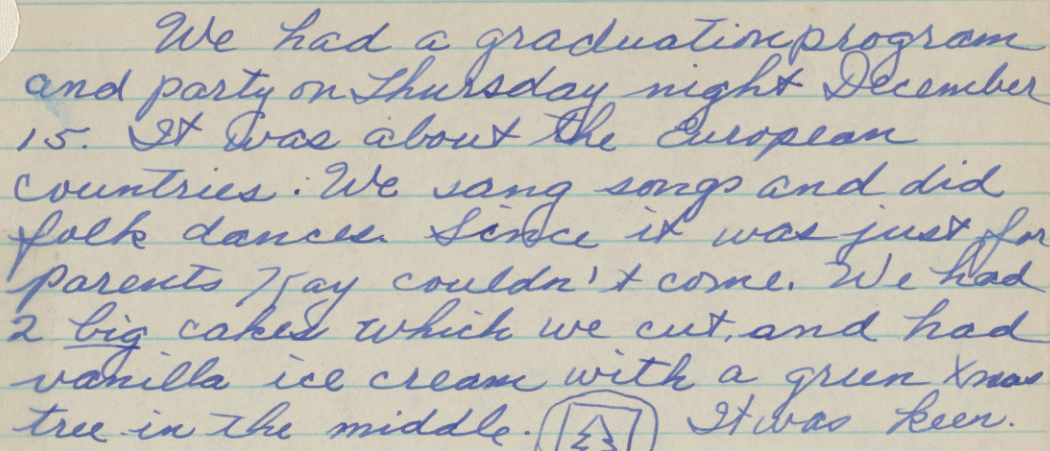 We had a graduation program
and party on Thursday night December
15. It was about the European
countries. We sang songs and did
folk dances. Since it was just for
parents Kay couldn't come. We had
2 big cakes which we cut, and had
vanilla ice cream with a green Xmas
tree in the middle. It was keen.